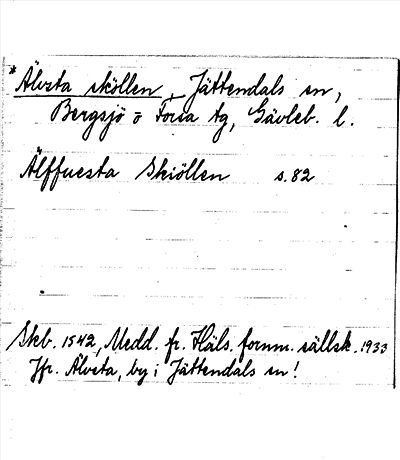 *Älvsta sköllen, Jättendals sn,
Bergsjö o Forsa tg, Gävleb. l.
Älffuesta Skiöllen s. 82
Skb. 1542, Medd. fr. Häls. fornm. sällsk. 1933
Jfr. Älvsta, by i Jättendals sn!